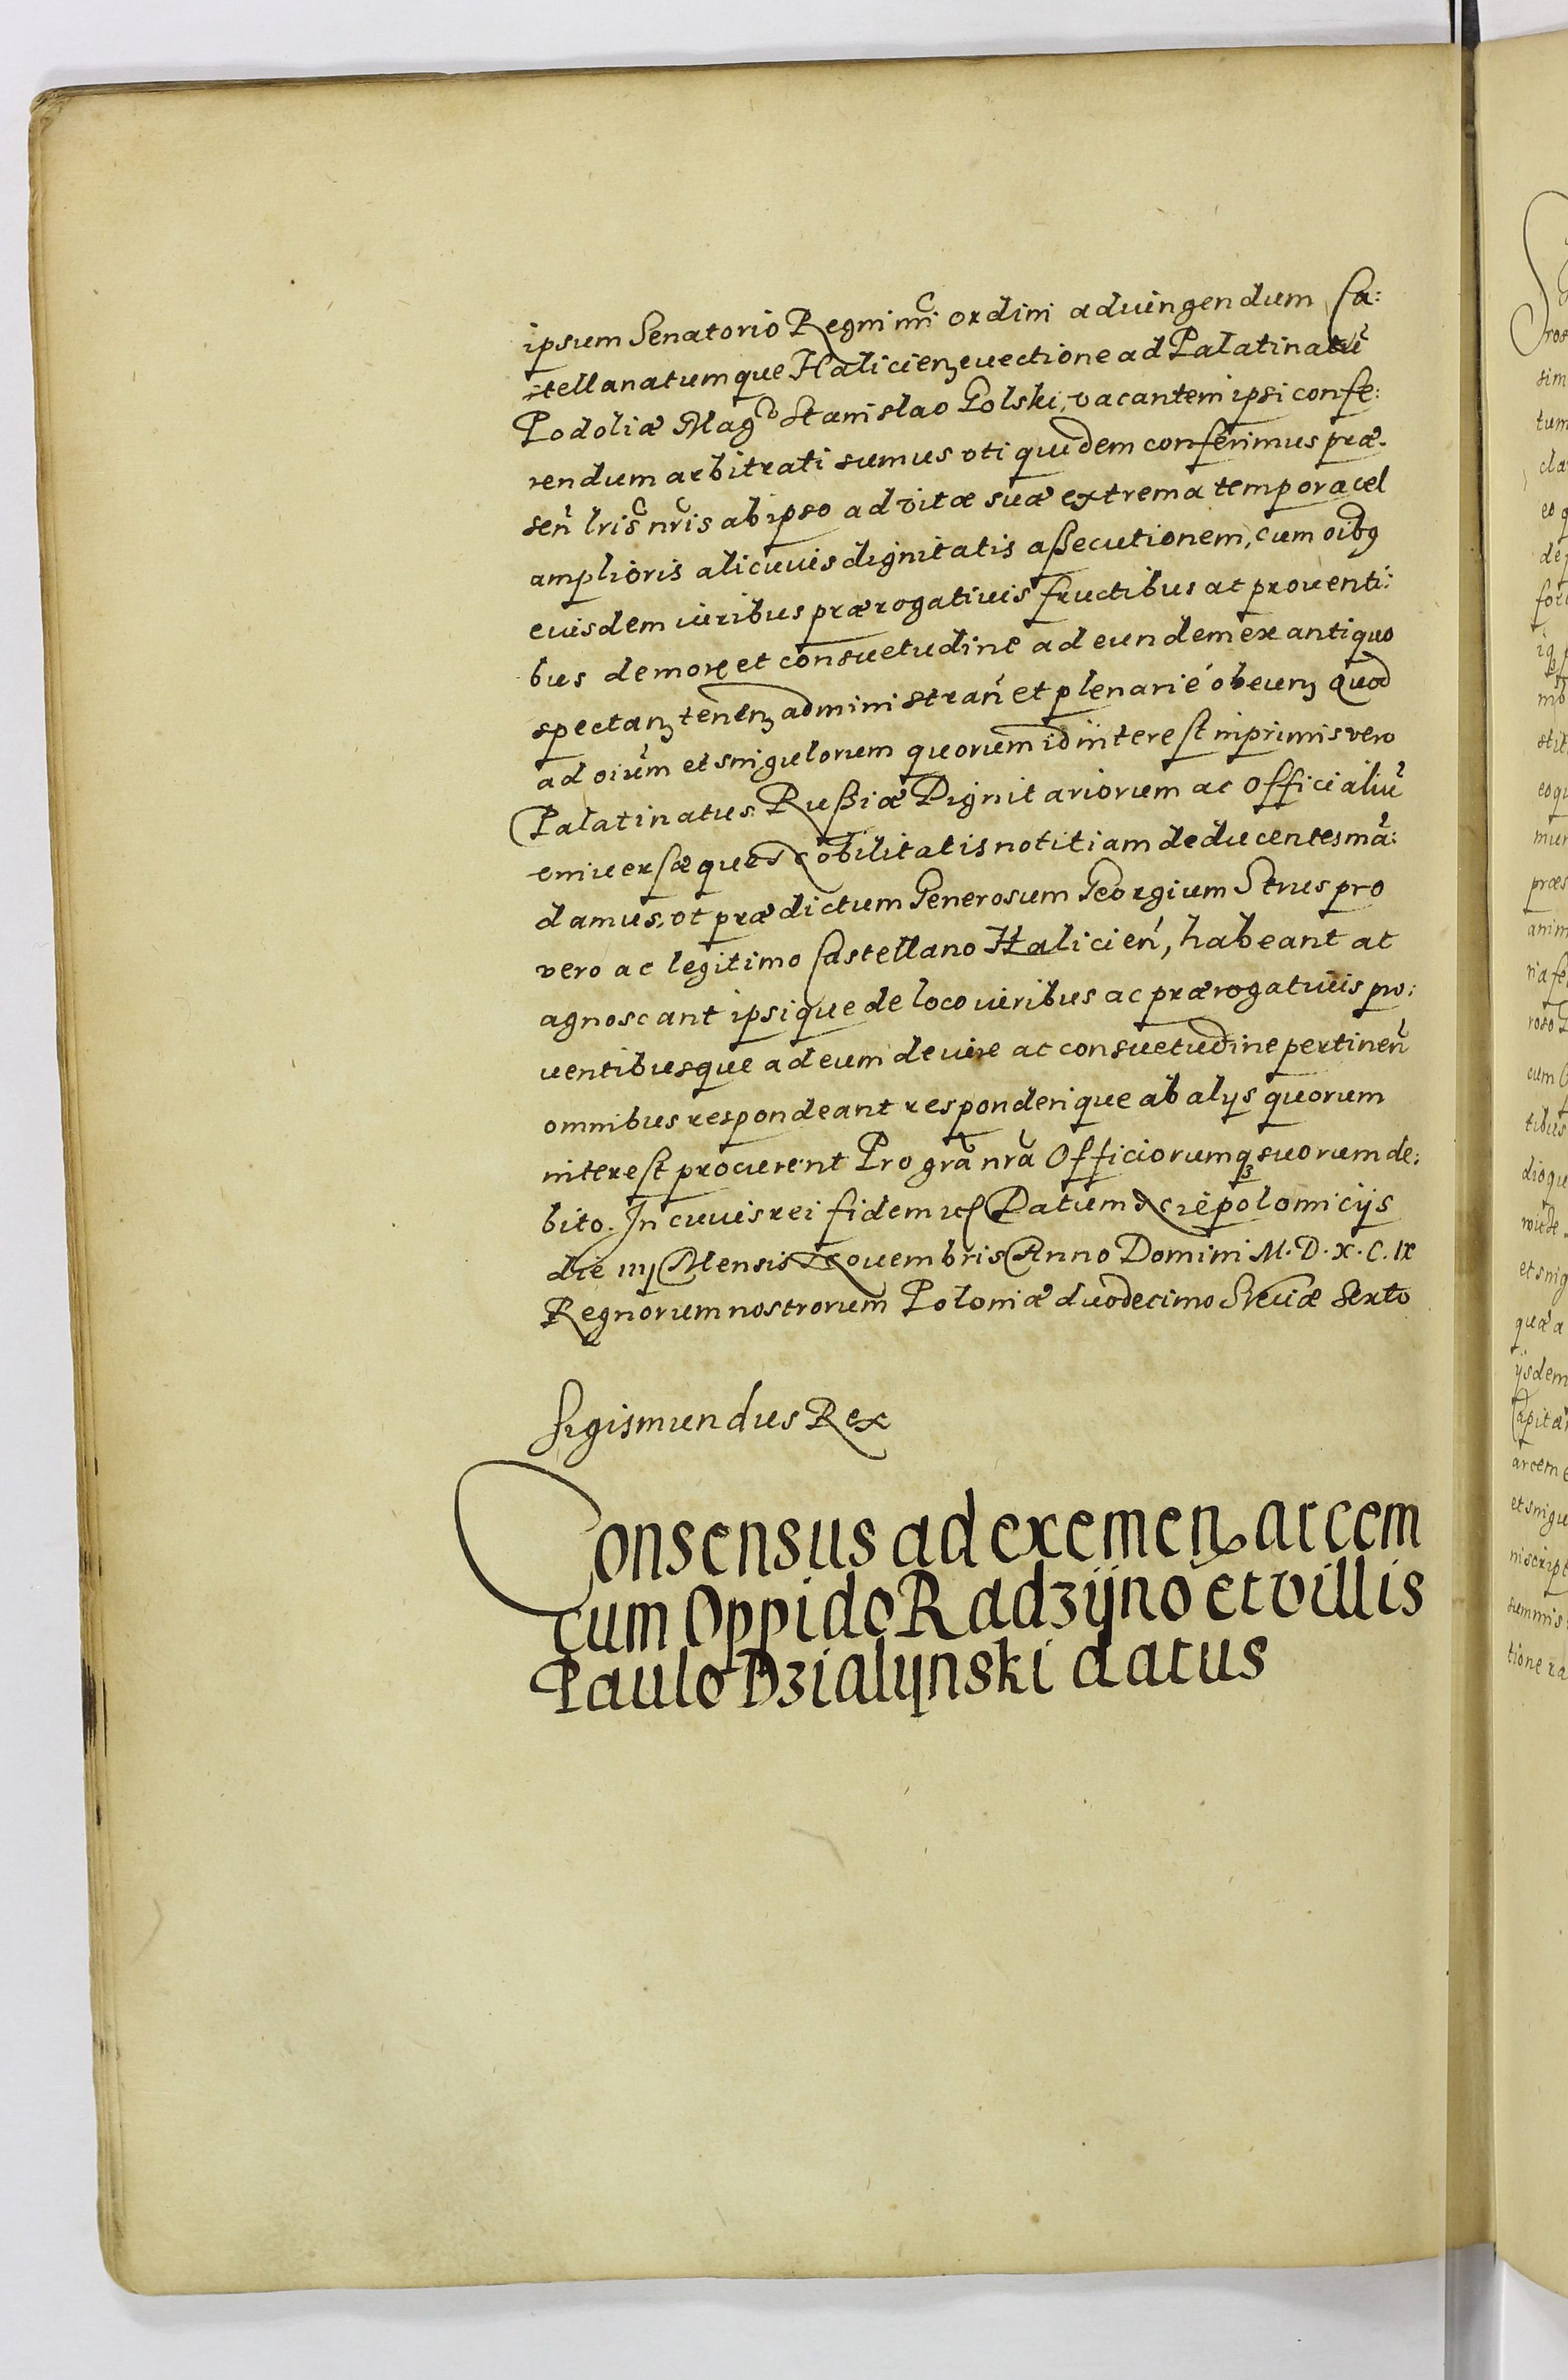 ipsum Senatorio Regni nri ordini adiungendum Ca:
stellanatumque Halicienʒ euectione ad Palatinatũ
Podoliæ Magco Stanislao Golski, vacantem ipsi confe:
rendum arbitrati sumus vti quidem conferimus præ:
señ lris nris ab ipso ad vitæ suæ extrema tempora vel
amplioris alicuius dignitatis aßecutionem, cum oibꝯ
eiusdem iuribus prærogatiuis fructibus ac prouenti:
bus de more et consuetudine ad eundem ex antiquo
spectanʒ tenenʒ administrań et plenarié obeunʒ Quod
ad oium et singulorum quorum id interest inprimis vero
Palatinatus Rußiæ Dignitariorum ac Officialiũ
vniuersæque Nobilitatis notitiam deducentes mã:
damus, vt prædictum Generosum Georgium Strus pro
vero ac legitimo Castellano Halicień, habeant ac
agnoscant ipsique de loco iuribus ac prærogatiuis pro:
uentibusque ad eum de iure ac consuetudine pertineñ
omnibus respondeant responderique ab alijs quorum
interest procurent Pro grã nrã Officiorumqꝫ suorum de:
bito. In cuius rei fidem etc Datum Niepolomicijs
die iiij Mensis Nouembris Anno Domini M. D. X. C. IX
Regnorum nostrorum Poloniæ duodecimo Sueciæ Sexto
Sigismundus Rex
Consensus ad exemenʒ arcem
cum Oppido Radzijno et villis
Paulo Dzialijnski datus